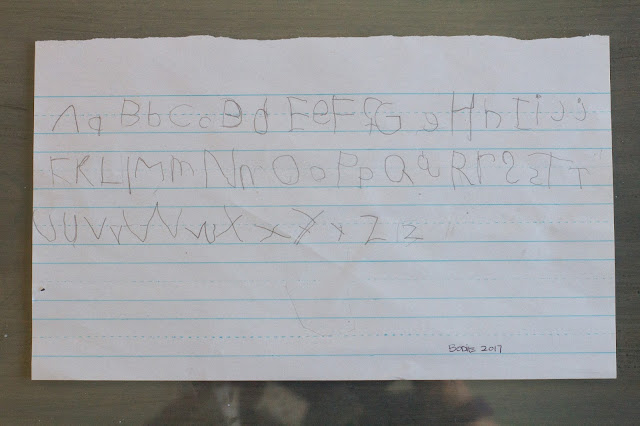 A a B b C c D d E e F f G g H h I i J j
K k L l M m N n O o P p Q q R r S s T T
U U V v W w X x Y y Z z
BODIE 2017